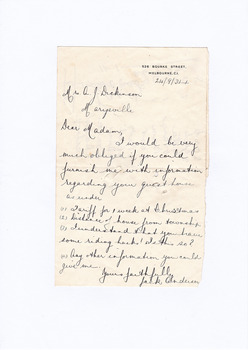 528 BOURKE STREET,
MELBOURNE. C.I.
24/9/31
Mrs A J Dickinson
Marysville
Dear Madam,
I would be very
much obliged if you could
furnish me with information
regarding your guest house
as under
(1) Tariff for 1 week at Christmas
(2) Distance of house from township
(3) I understand that you have
some riding hacks! Is this so?
(4) Any other information you could
give me.
Yours faithfully
Jack Anderson